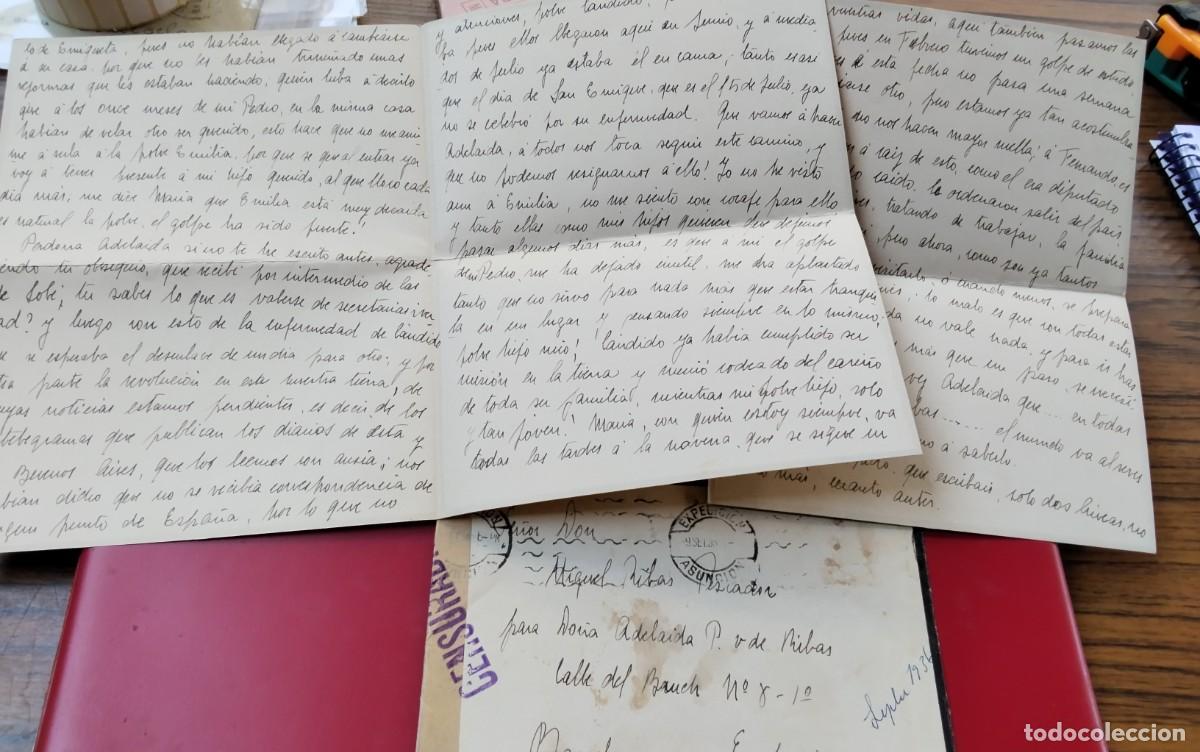 lo de Enriqueta, pues no habían llegado á cambiarse
á su casa, por que no les habían terminado unas
reformas que les estaban haciendo, quién iba á decirlo
que á los once meses de mi Pedro, en la misma casa
habían de velar otro ser querido, esto hace que no me anime
á sola á la pobre Emilia, por que se que al entrar ya
voy á tener presente á mi hijo querido, al que lloro cada
día más; me dice María que Emilia está muy decaída
es natural la pobre, el golpe ha sido fuerte!
Perdona Adelaida si no te he escrito antes, agrade
ciendo tu obsequio, que recibí por intermedio de las
de Solé; tu sabes lo que es valerse de secretarias ¿ver
dad? y luego con esto de la enfermedad de Cándido
que se esperaba el desenlace de un día para otro; y por
otra parte la revolución en esta nuestra tierra, de
cuyas noticias estamos pendientes, es decir de los
telegramas que publican los diarios de ésta y
Buenos Aires, que los leemos con ansia; nos
habían dicho que no se recibía correspondencia de
ningun punto de España, por lo que no
y atenciones, pobre Cándido,
pues ellos llegaron aquí en Junio, y á media
dos de Julio ya estaba él en cama; tanto es así
que el día de San Enrique, que es el 15 de Julio, ya
no se celebró por su enfermedad. Que vamos á hacer
Adelaida, á todos nos toca seguir este camino, y
que no podemos resignarnos á ello! Yo no he visto
aun á Emilia, no me siento con coraje para ello
y tanto ellas como mis hijos quieren que dejemos
pasar algunos días más, es que á mi el golpe
de mi Pedro, me ha dejado inutil, me ha aplastado
tanto que no sirvo para nada más que estar tranqui
la en un lugar y pensando siempre en lo mismo,
pobre hijo mío! Cándido ya había cumplido su
misión en la tierra y murió rodeado del cariño
de toda su familia, mientras mi pobre hijo, solo
y tan joven! María, con quien estoy siempre, va
todas las tardes á la novena que se sigue en
nuestras vidas, aquí también pasamos las
pues en Febrero tuvimos un golpe de estado,
á esta fecha no pasa una semana
otro, pero estamos ya tan acostumbra
no nos hacen mayor mella; á Fernando, es
á raíz de esto, como él era diputado
caído, le ordenaron salir del país
tratando de trabajar, la familia
pero ahora, como son ya tantos
visitarlo, ó cuando menos, se prepara
lo malo es que con todas estas
no vale nada, y para ir hay
más que un paso, se necesi
Adelaida que... en todas
..... el mundo va al revés
á saberlo.
que escribais, solo dos líneas, no
más, cuanto antes.
CENSURADA
EXPEDICION
ASUNCION
Señor Don
Miguel Ribas Pescador
para Doña Adelaida P. v de Ribas
Calle del Bruch Nº 8 - 1º
Septbre 1936
todocoleccion